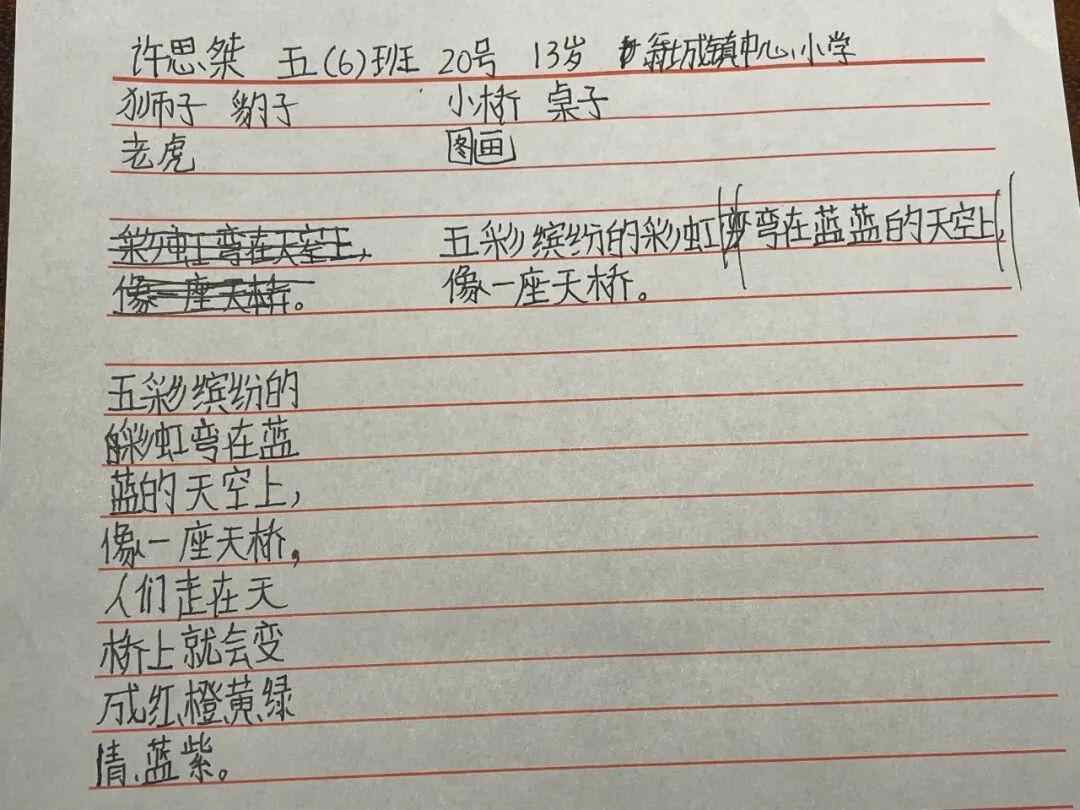 许思桀 五(6)班 20号 13岁 新城镇中心小学
狮子 豹子 小桥 桌子
老虎 图画
彩虹弯在天空上， 五彩缤纷的彩虹弯在蓝蓝的天空上，
像一座天桥。 像一座天桥。
五彩缤纷的
彩虹弯在蓝
蓝的天空上，
像一座天桥，
人们走在天
桥上就会变
成红、橙、黄、绿
情、蓝紫。